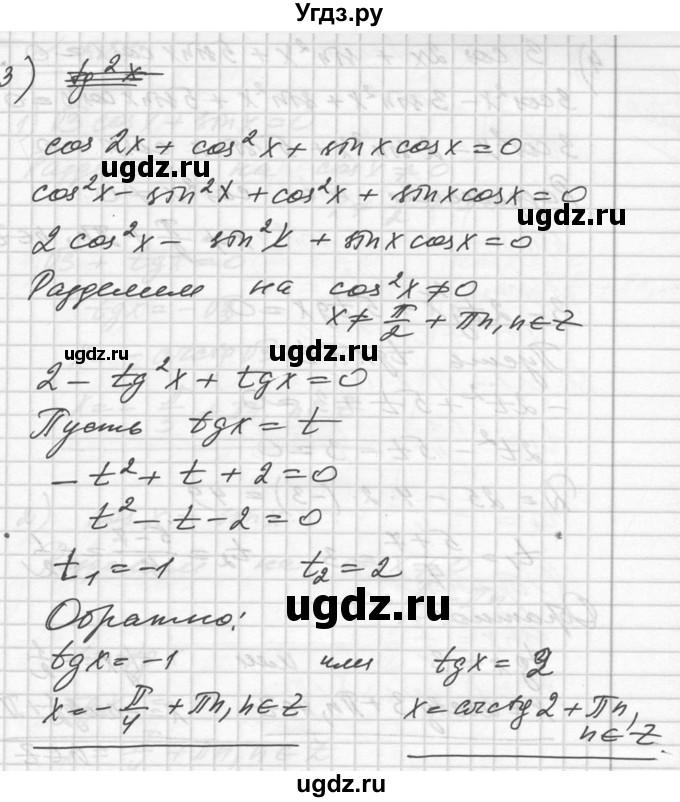 Угдз.ру
3) tg²x
cos 2x + cos²x + sinx cosx = 0
ugdz.ru ugdz.ru
cos²x - sin²x + cos²x + sinx cosx = 0
2 cos²x - sin²x + sinx cosx = 0
Разделим на cos²x ≠ 0
x ≠ π/2 + πn, n ∈ Z
ugdz.ru ugdz.ru
2 - tg²x + tgx = 0
Пусть tgx = t
-t² + t + 2 = 0
t² - t - 2 = 0
t₁ = -1 t₂ = 2
ugdz.ru
Обратно:
tgx = -1 или tgx = 2
x = -π/4 + πn, n ∈ Z x = arctg 2 + πn,
n ∈ Z.
ugdz.ru ugdz.ru
ugdz.ru